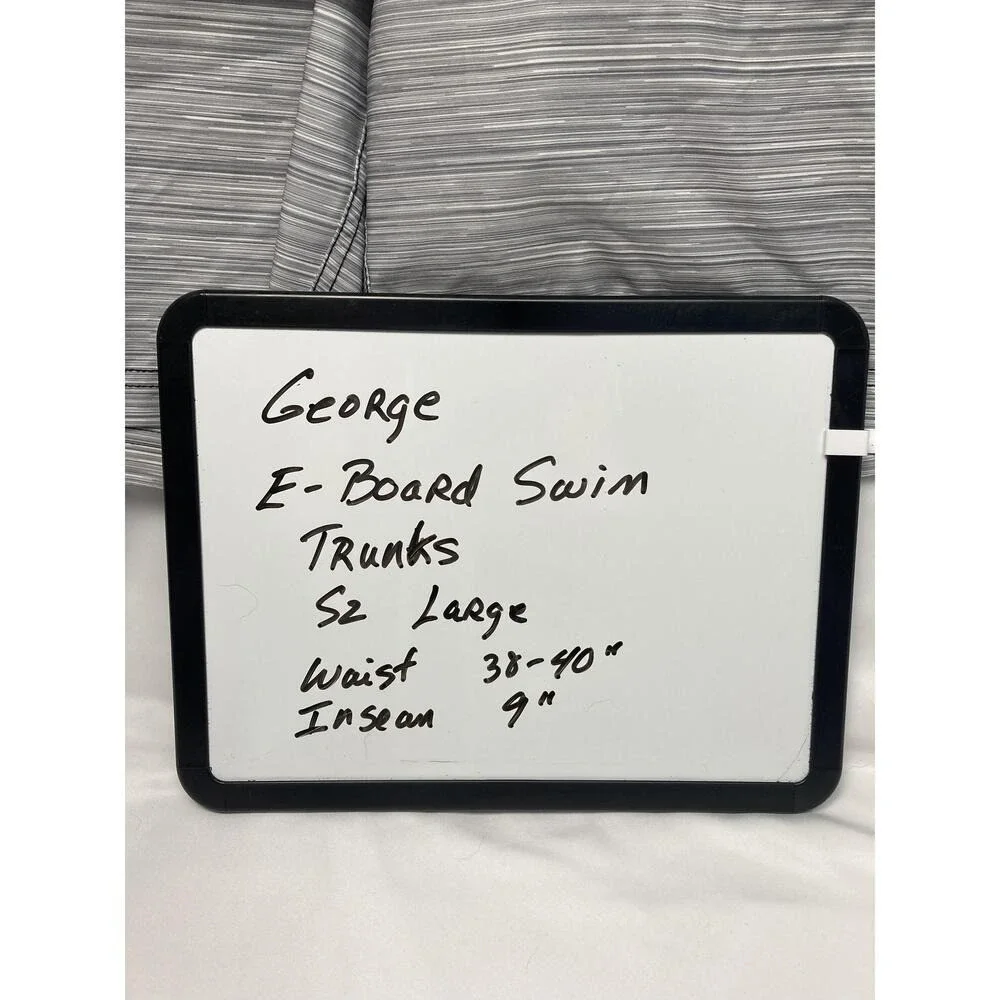 George
E-Board Swim
Trunks
Sz Large
Waist 38-40"
Inseam 9"